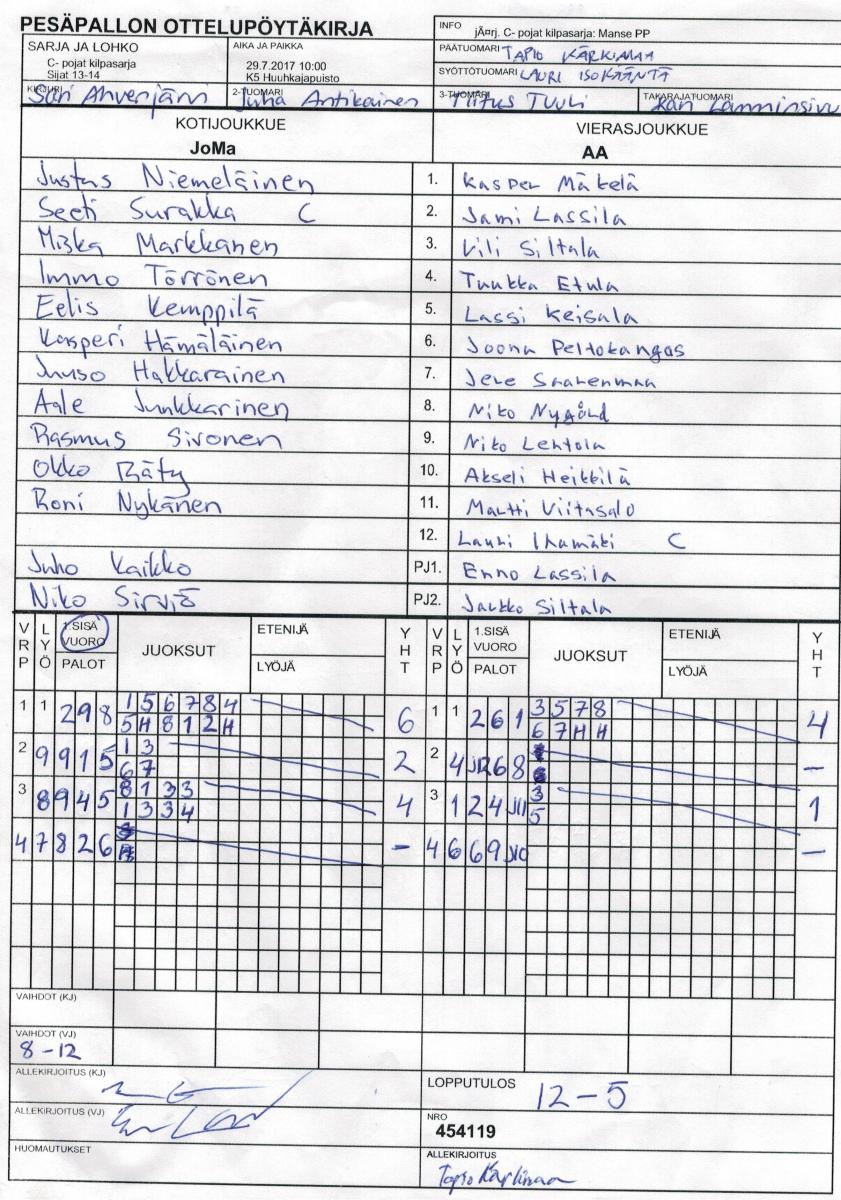 PESÄPALLON OTTELUPÖYTÄKIRJA
INFO jÄ¤rj. C- pojat kilpasarja: Manse PP
SARJA JA LOHKO
C- pojat kilpasarja
Sijat 13-14
AIKA JA PAIKKA
29.7.2017 10:00
K5 Huuhkajapuisto
PÄÄTUOMARI TAPIO KÄRKIMAA
SYÖTTÖTUOMARI LAURI ISOKÄÄNTÄ
KIRJURI Sari Ahvenjärvi
2-TUOMARI Juha Antikainen
3-TUOMARI Tiitus TUULI
TAKARAJATUOMARI Kari Lamminsivu
KOTIJOUKKUE
JoMa
VIERASJOUKKUE
AA
Justus Niemeläinen 1. Kasper Mäkelä
Seeti Surakka C 2. Jami Lassila
Miska Markkanen 3. Vili Siltala
Immo Törrönen 4. Tuukka Etula
Eelis Kemppilä 5. Lassi Keisala
Kasperi Hämäläinen 6. Joona Peltokangas
Juuso Hakkarainen 7. Jere Saarenmaa
Aale Junkkarinen 8. Niko Nygård
Rasmus Sironen 9. Niko Lehtola
Okko Räty 10. Akseli Heikkilä
Roni Nykänen 11. Martti Viitasalo
12. Lauri Ihamäki C
Juho Kaikko PJ1. Enno Lassila
Niko Sirviö PJ2. Jarkko Siltala
VRP LYÖ 1.SISÄ VUORO PALOT JUOKSUT ETENIJÄ LYÖJÄ YHT VRP LYÖ 1.SISÄ VUORO PALOT JUOKSUT ETENIJÄ LYÖJÄ YHT
1 1 2 9 8 1 5 6 7 8 4 6 1 1 2 6 1 3 5 7 8 4
5 H 8 1 2 H 6 7 H H
2 9 9 1 5 1 3 2 2 4 J12 6 8 –
6 7
3 8 9 4 5 8 1 3 3 4 3 1 2 4 J11 3 1
1 3 3 4 5
4 7 8 2 6 – 4 6 6 9 J10 –
VAIHDOT (KJ)
VAIHDOT (VJ)
8-12
ALLEKIRJOITUS (KJ)
LOPPUTULOS 12-5
ALLEKIRJOITUS (VJ)
NRO
454119
HUOMAUTUKSET
ALLEKIRJOITUS
Tapio Kärkimaa